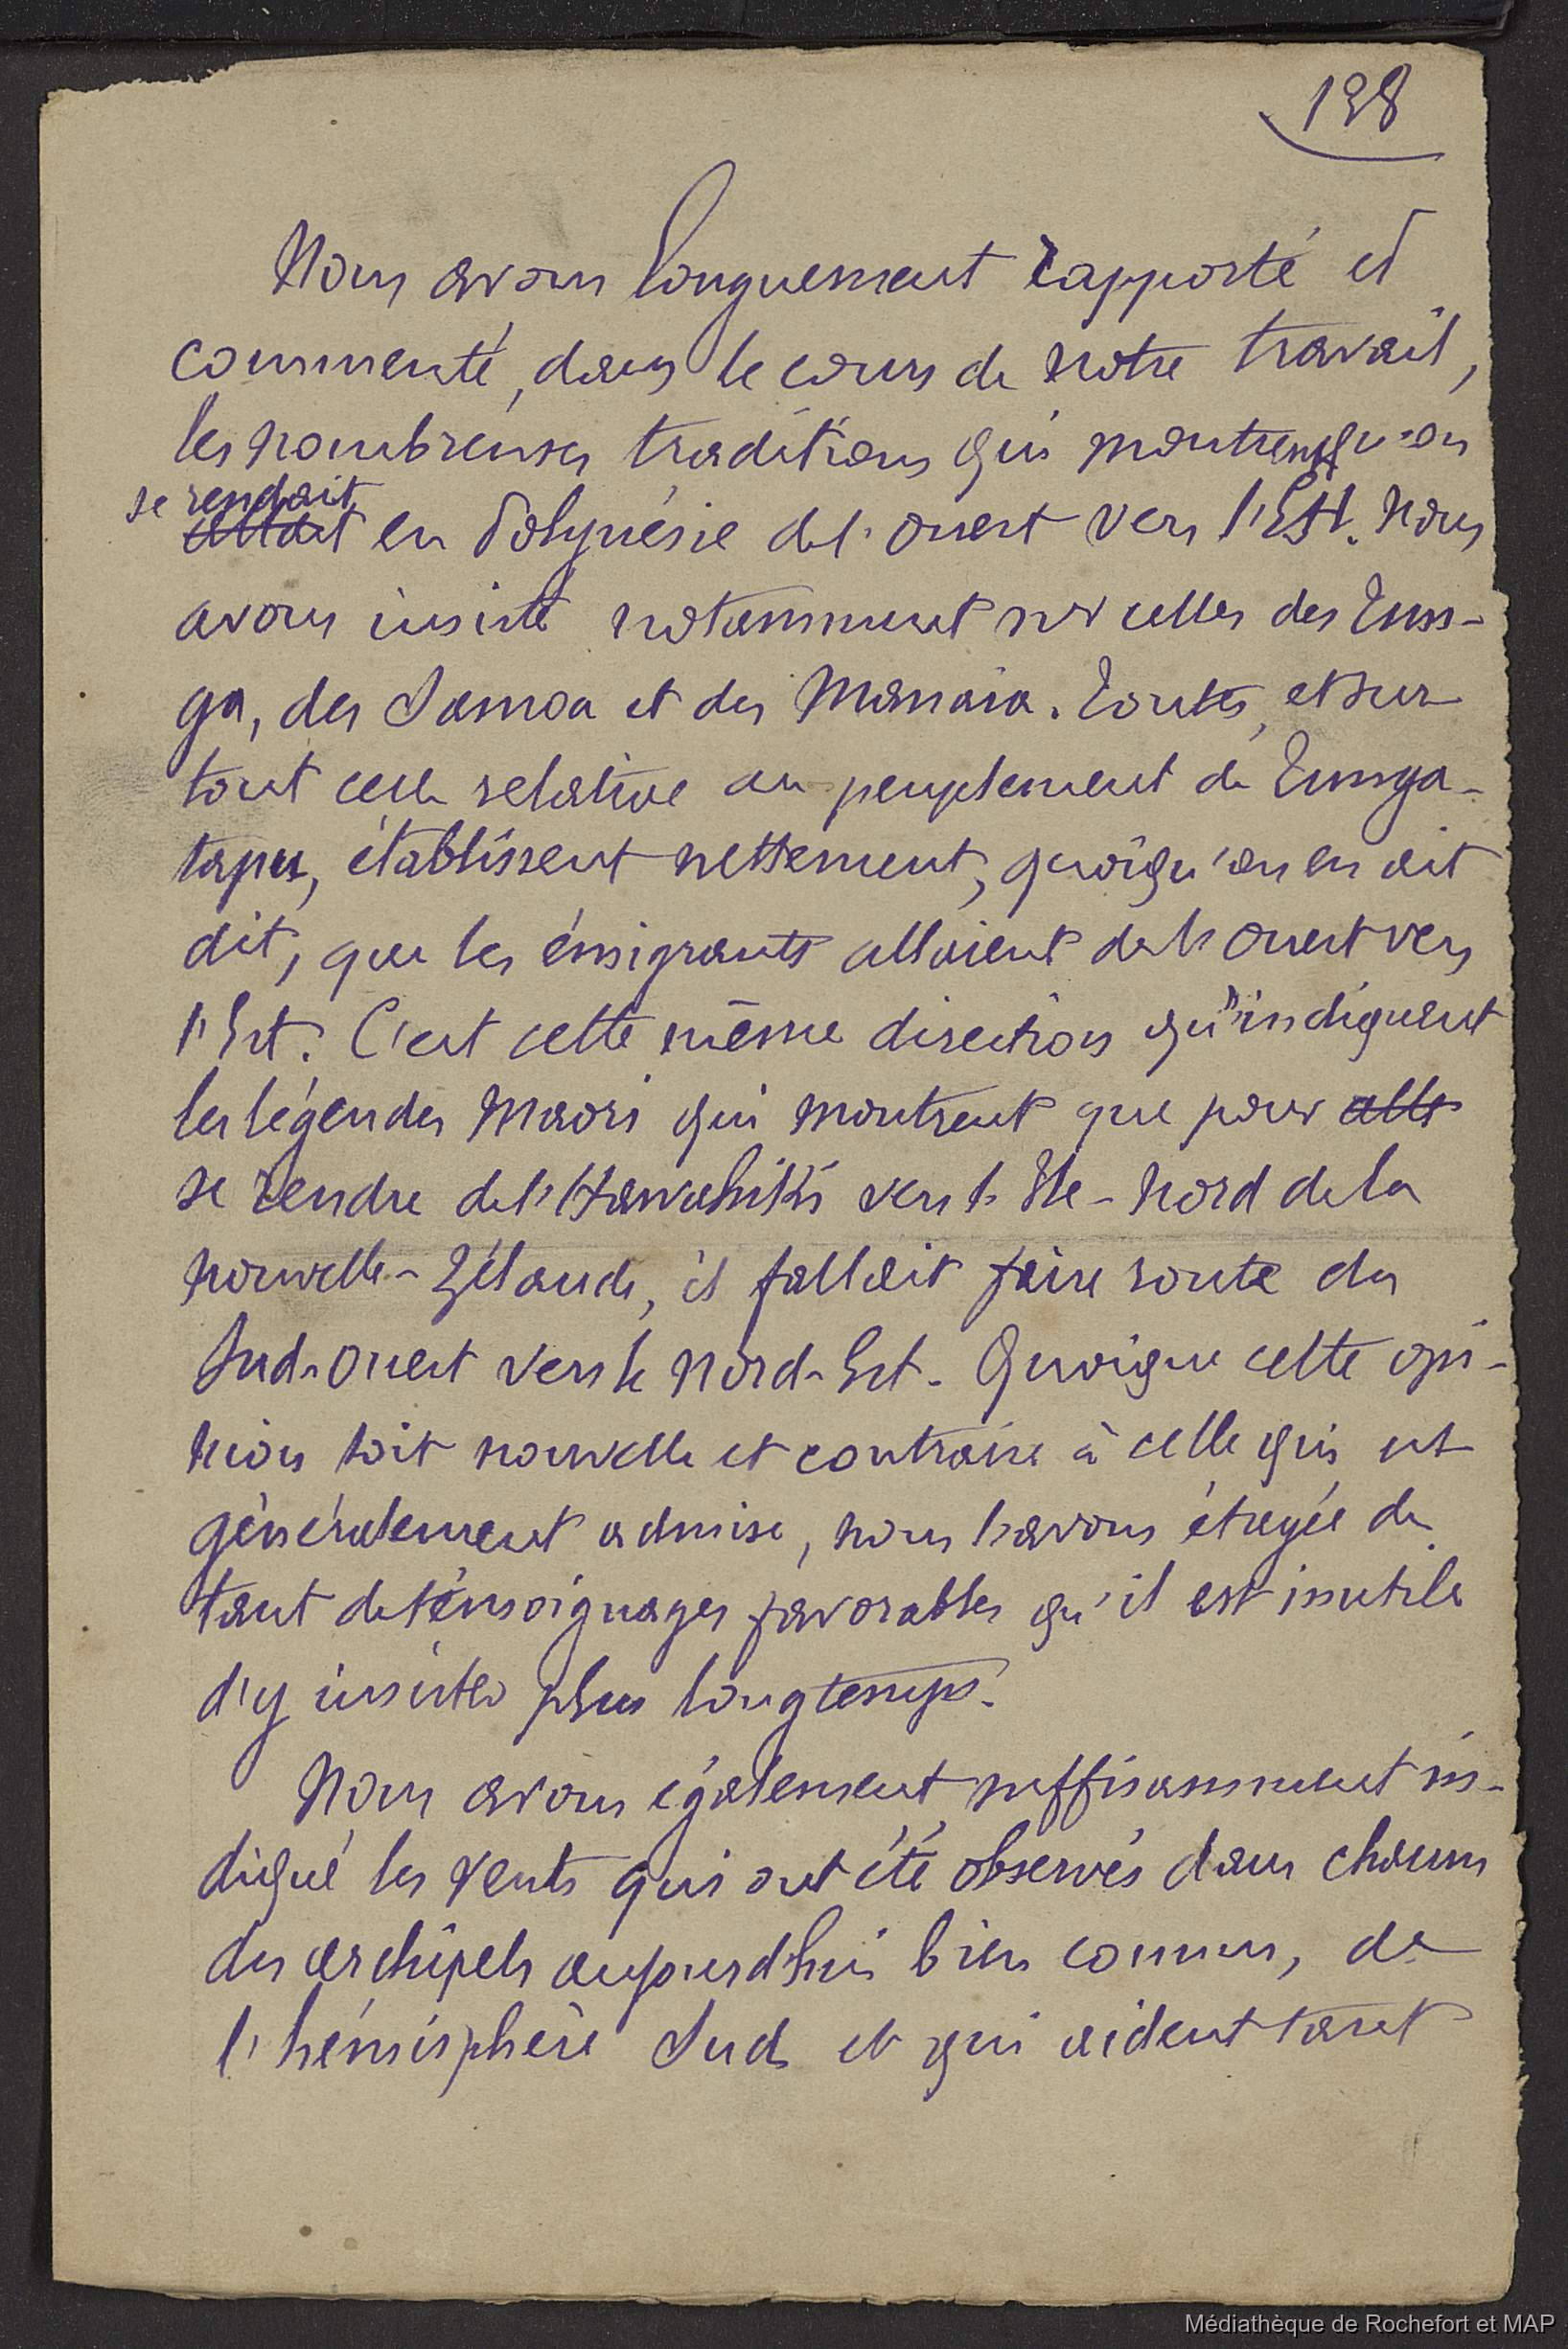 138
Nous avons longuement rapporté et
commenté, dans le cours de notre travail,
les nombreuses traditions qui montrent qu'on
se rendait
allait en Polynésie de l'Ouest vers l'Est. Nous
avons insisté notamment sur celles des Tun-
ga, des Samoa et des Manaia. Toutes, et sur
tout celle relative au peuplement de Tunga-
tapu, établissent nettement, quoiqu'on en ait
dit, que les émigrants allaient de l'Ouest vers
l'Est. C'est cette même direction qu'indiquent
les légendes Maori qui montrent que pour alle
se rendre de l'Hawahiki vers l'Ile-Nord de la
Nouvelle-Zélande, il fallait faire route du
Sud-Ouest vers le Nord-Est. Quoique cette opi-
nion soit nouvelle et contraire à celle qui est
généralement admise, nous l'avons étayée de
tant de témoignages favorables qu'il est inutile
d'y insister plus longtemps.
Nous avons également suffisamment in-
diqué les vents qui ont été observés dans chacun
des archipels aujourd'hui bien connus, de
l'hémisphère Sud et qui aident tant
Médiathèque de Rochefort et MAP